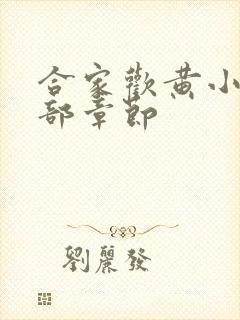 合家歡黄小
部章節
劉麗發